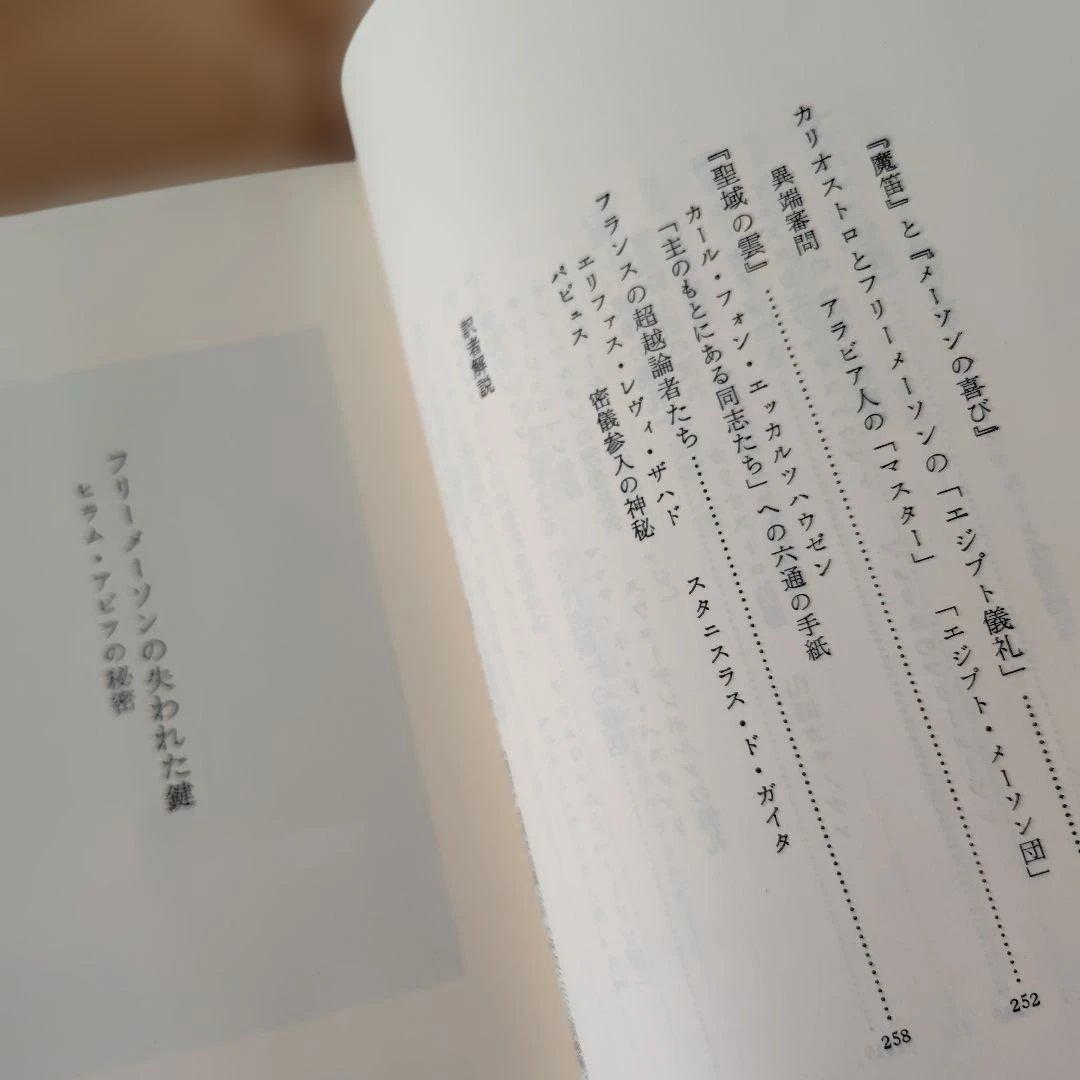 『魔笛』と『メーソンの喜び』
カリオストロとフリーメーソンの「エジプト儀礼」……………
異端審問　アラビア人の「マスター」　「エジプト・メーソン団」
『聖域の雲』……………252
カール・フォン・エッカルツハウゼン
「主のもとにある同志たち」への六通の手紙
フランスの超越論者たち……………258
エリファス・レヴィ・ザハド　スタニスラス・ド・ガイタ
パピュス　密儀参入の神秘
訳者解説
フリーメーソンの失われた鍵
ヒラム・アビフの秘密